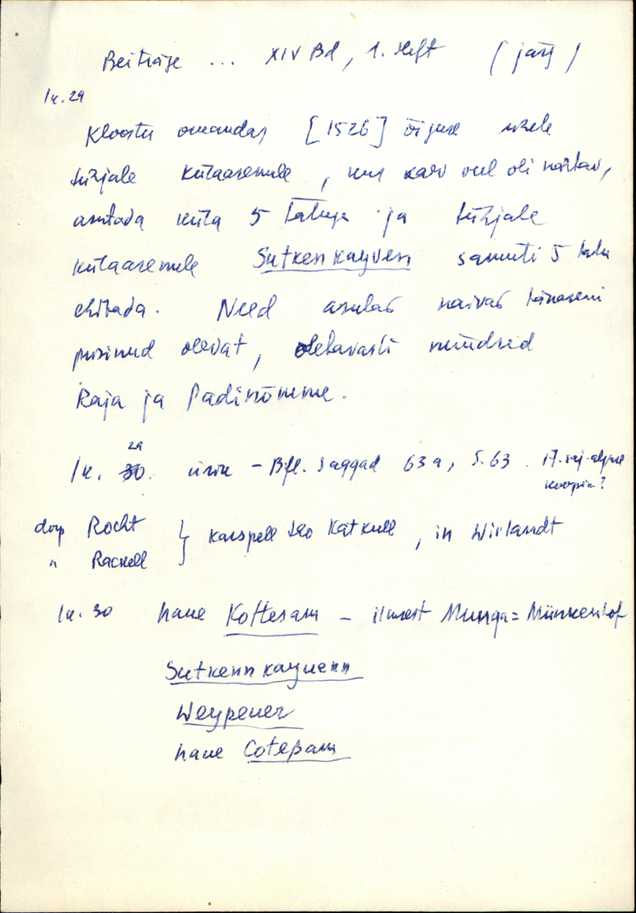 Beiträge ... XIV Bd, 1. Heft (järg)
lk. 29
Klooster omandas [1526] õiguse uuele
tühjale külaasemele, kus karv veel oli
asutada küla 5 taluga ja tühjale
külaasemele Sutkenkayven samuti 5 talu
ehitada. Need asulad
püsinud olevat, oletavasti nüüdsed
Raja ja Padinõmme.
lk. 30. 29 ürik - Bfl. Jaggad 63a, S. 63. 17. saj. alguse
koopia?
dorp Rocht } karspell tho Katkull, in Wirlandt
" Rackell
lk. 30 haue Koltesam - ilmselt Munga = Münkenhof
Sutkenn kayuenn
Weypeuer
haue Cotepam